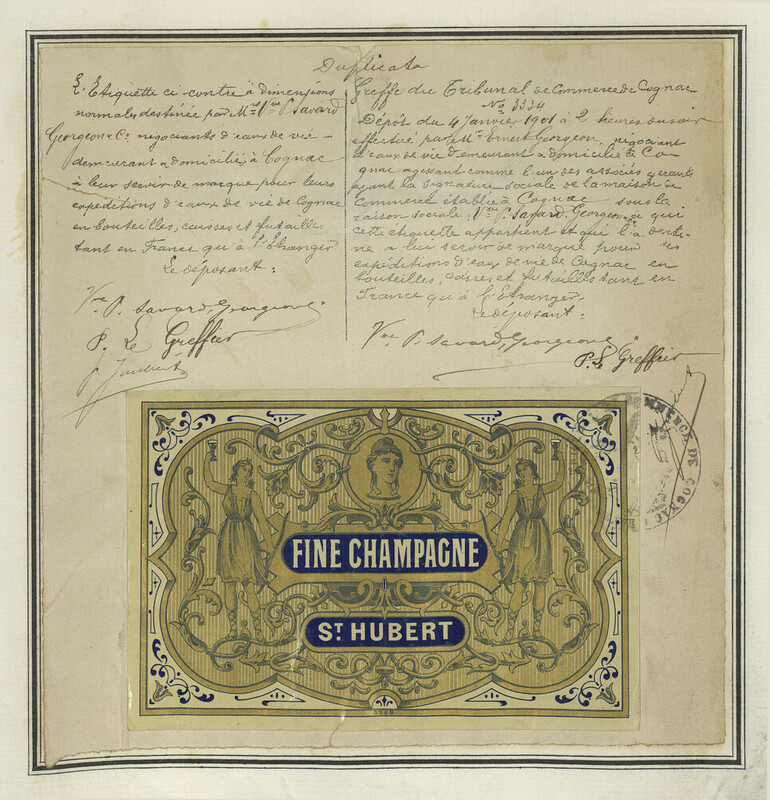 Duplicata
L'Etiquette ci-contre à dimensions
normales destinée par Mr Vve P. Savard
Georgeon & Co négociants d'eaux de vie
demeurant & domiciliés à Cognac
à leur servir de marque pour leurs
expéditions d'eaux de vie de Cognac
en bouteilles, caisses et futailles
tant en France qu'à l'Etranger
Le déposant :
Vve P. Savard, Georgeon
P. Le Greffier
P. Joubert
Greffe du Tribunal de Commerce de Cognac
No 3334
Dépôt du 4 Janvier 1901 à 2 heures du soir
effectué par Mr Ernest Georgeon, négociant
d'eaux de vie demeurant & domicilié à Co
gnac agissant comme l'un des associés gérants
ayant la signature sociale de la maison de
Commerce établie à Cognac sous la
raison sociale, Vve P. Savard, Georgeon & Co qui
cette étiquette appartient et qui l'a desti-
né a lui servir de marque pour ses
expéditions d'eaux de vie de Cognac en
bouteilles, caisses et futailles tant en
France qu'à l'Etranger.
Le déposant :
Vve P. Savard, Georgeon
P. L. Greffier
COMMERCE DE COGNAC
FINE CHAMPAGNE
ST HUBERT